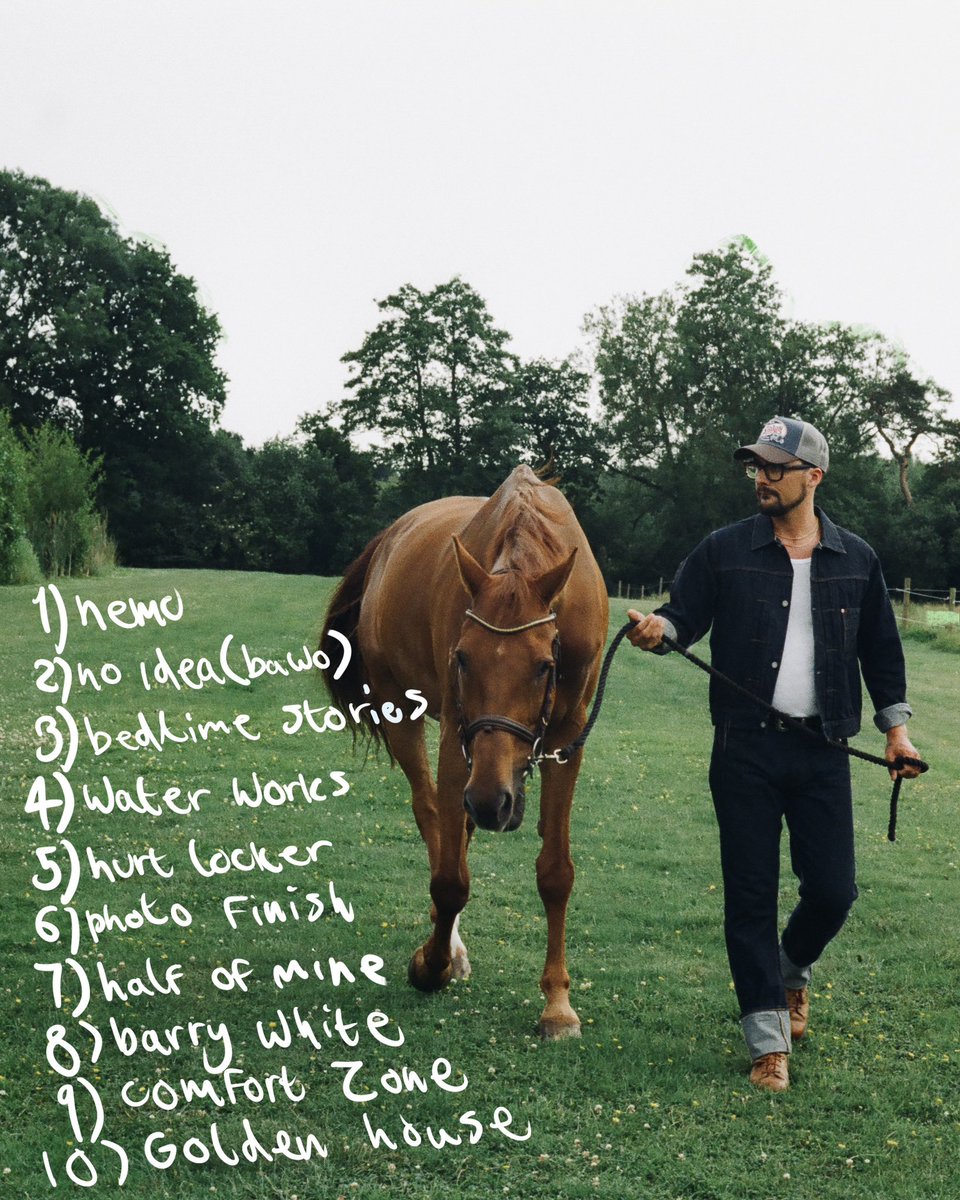 1) nemo
2) no idea (bawo)
3) bedtime stories
4) Water Works
5) hurt locker
6) photo Finish
7) half of mine
8) barry white
9) comfort zone
10) Golden house